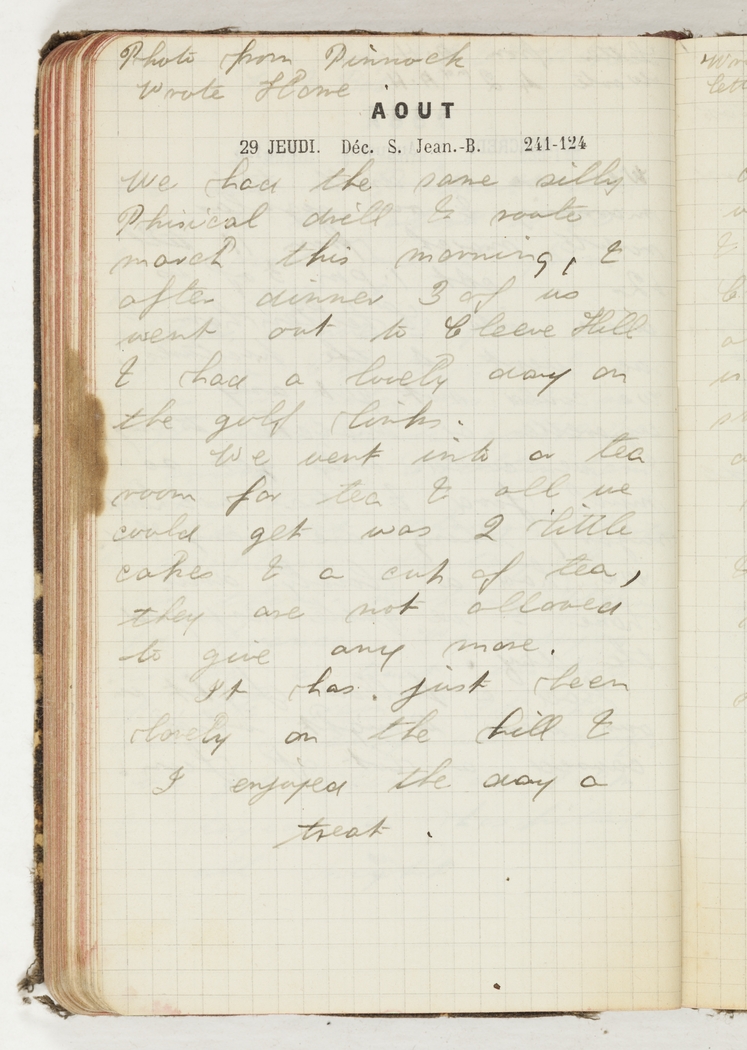 Photo from Pinnock
Wrote Home
AOUT
29 JEUDI. Déc. S. Jean.-B. 241-124
We had the same silly
Phisical drill & route
march this morning, &
after dinner 3 of us
went out to Cleeve Hill
& had a lovely day on
the golf links.
We went into a tea
room for tea & all we
could get was 2 little
cakes & a cup of tea,
they are not allowed
to give any more.
It has just been
lovely on the hill &
I enjoyed the day a
treat.